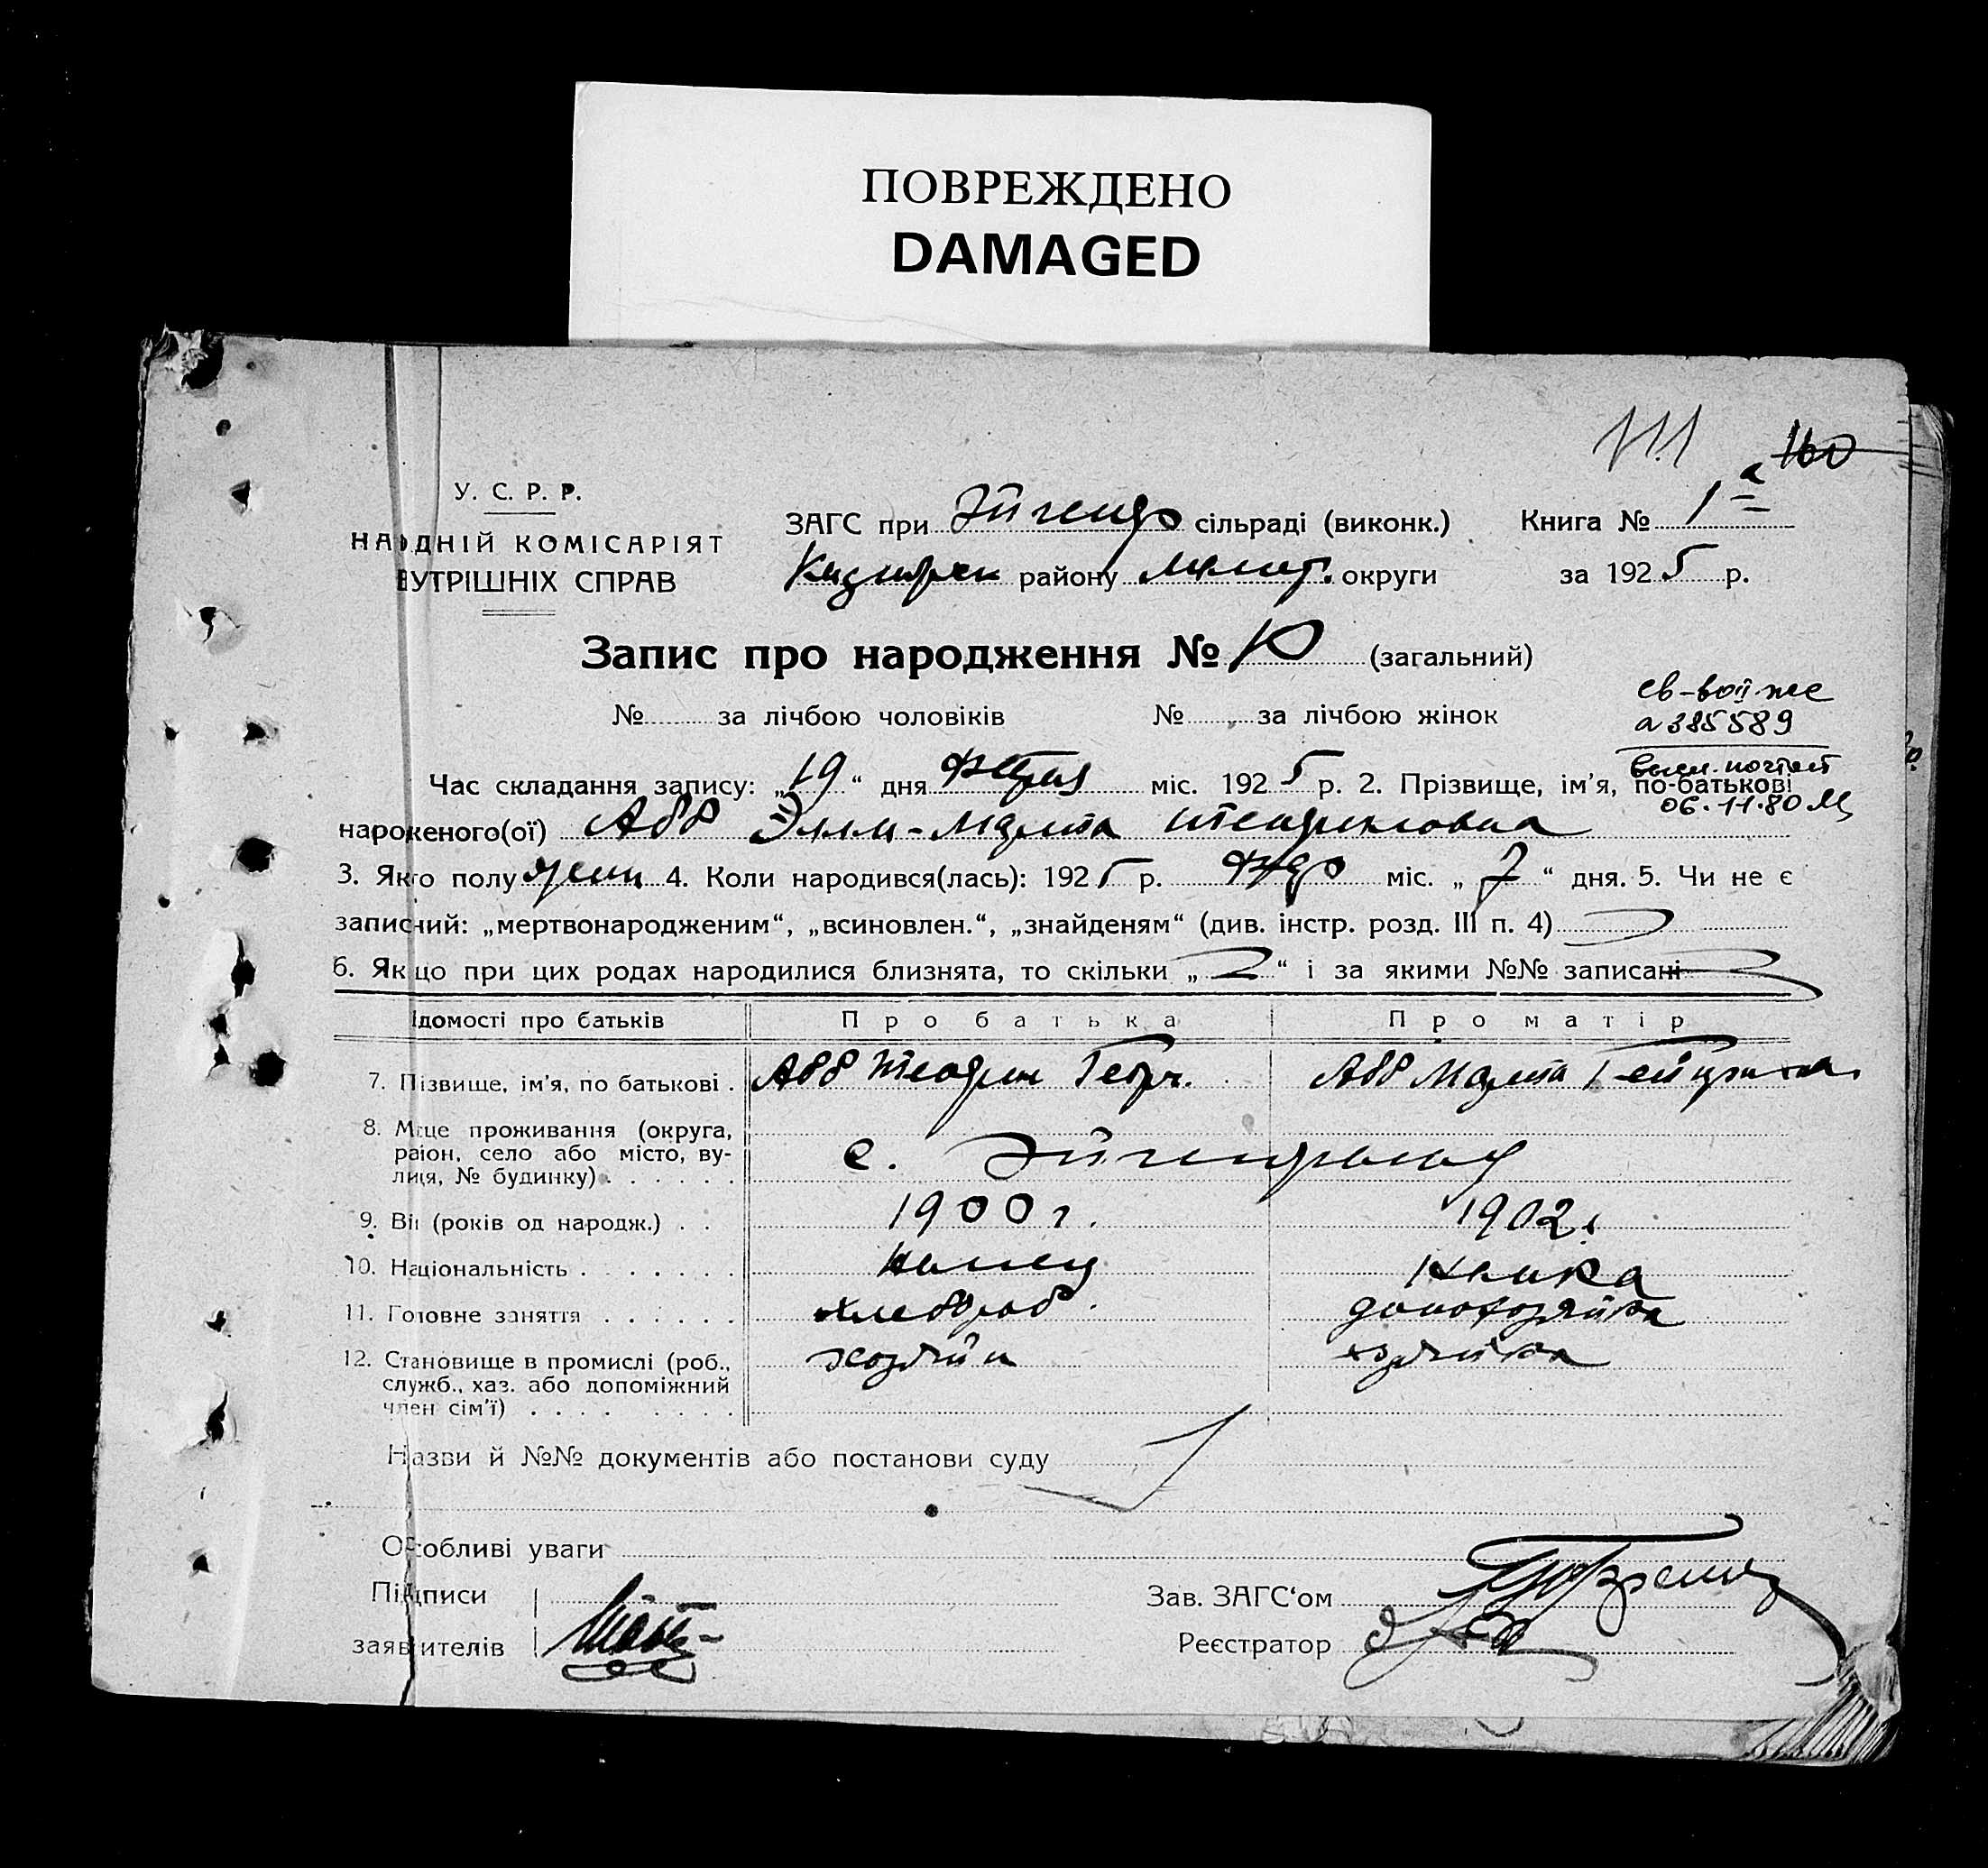 ПОВРЕЖДЕНО
DAMAGED
111 160
У. С. Р. Р.
НА ДНІЙ КОМІСАРІЯТ
ВУТРІШНІХ СПРАВ
ЗАГС при сільраді (виконк.) Книга № 1а
району округи за 1925 р.
Запис про народження № 10 (загальний)
№ за лічбою чоловіків № за лічбою жінок
а 385589
Час складання запису: „19“ дня міс. 1925 р. 2. Прізвище, ім'я, по-батькові
06.11.80
нароженого(ої) Абб Элли-Марта
3. Якго полу жен 4. Коли народився(лась): 1925 р. міс. „7“ дня. 5. Чи не є
записний: „мертвонародженим“, „всиновлен.“, „знайденям“ (див. інстр. розд. III п. 4)
6. Якцо при цих родах народилися близнята, то скільки „ “ і за якими №№ записані
ідомості про батьків Про батька Про матір
7. Пізвище, ім'я, по батькові . Абб Абб Марта
8. Мце проживання (округа,
район, село або місто, ву-
лиця, № будинку) . . . . . . с.
9. Ві (років од народж.) . . 1900 г. 1902 г.
10. Національність . . . . . . . Немец Немка
11. Головне заняття . . . . . . хлебороб. домохозяйка
12. Становище в промислі (роб., хозяйин хозяйка
служб., хаз. або допоміжний
член сім'ї) . . . . . . . .
Назви й №№ документів або постанови суду
Особливі уваги
Підписи Зав. ЗАГС'ом
заявителів Реєстратор